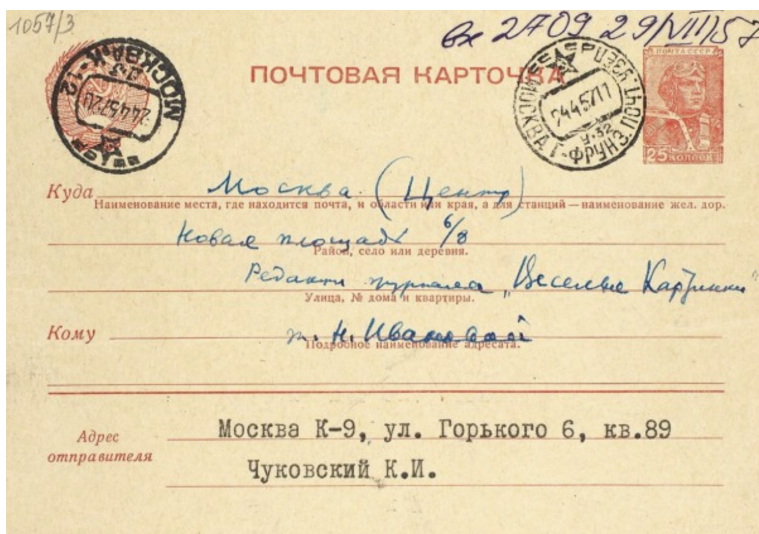 1057/3
вх 2709 29/VIII 57
ПОЧТОВАЯ КАРТОЧКА
ПОЧТА СССР
МОСКВА К-12
24457
МОСКВА Г-ФРУНЗ. ПОЧТ. УЗЕЛ
24457 11
У-32
25 КОПЕЕК
Куда Москва (Центр)
Наименование места, где находится почта, и области или края, а для станций — наименование жел. дор.
Новая площадь 6/8
Район, село или деревня.
Редакти журнала „Веселые Картинки"
Улица, № дома и квартиры.
Кому т. Н. Ивановой
Подробное наименование адресата.
Адрес отправителя
Москва К-9, ул. Горького 6, кв.89
Чуковский К.И.